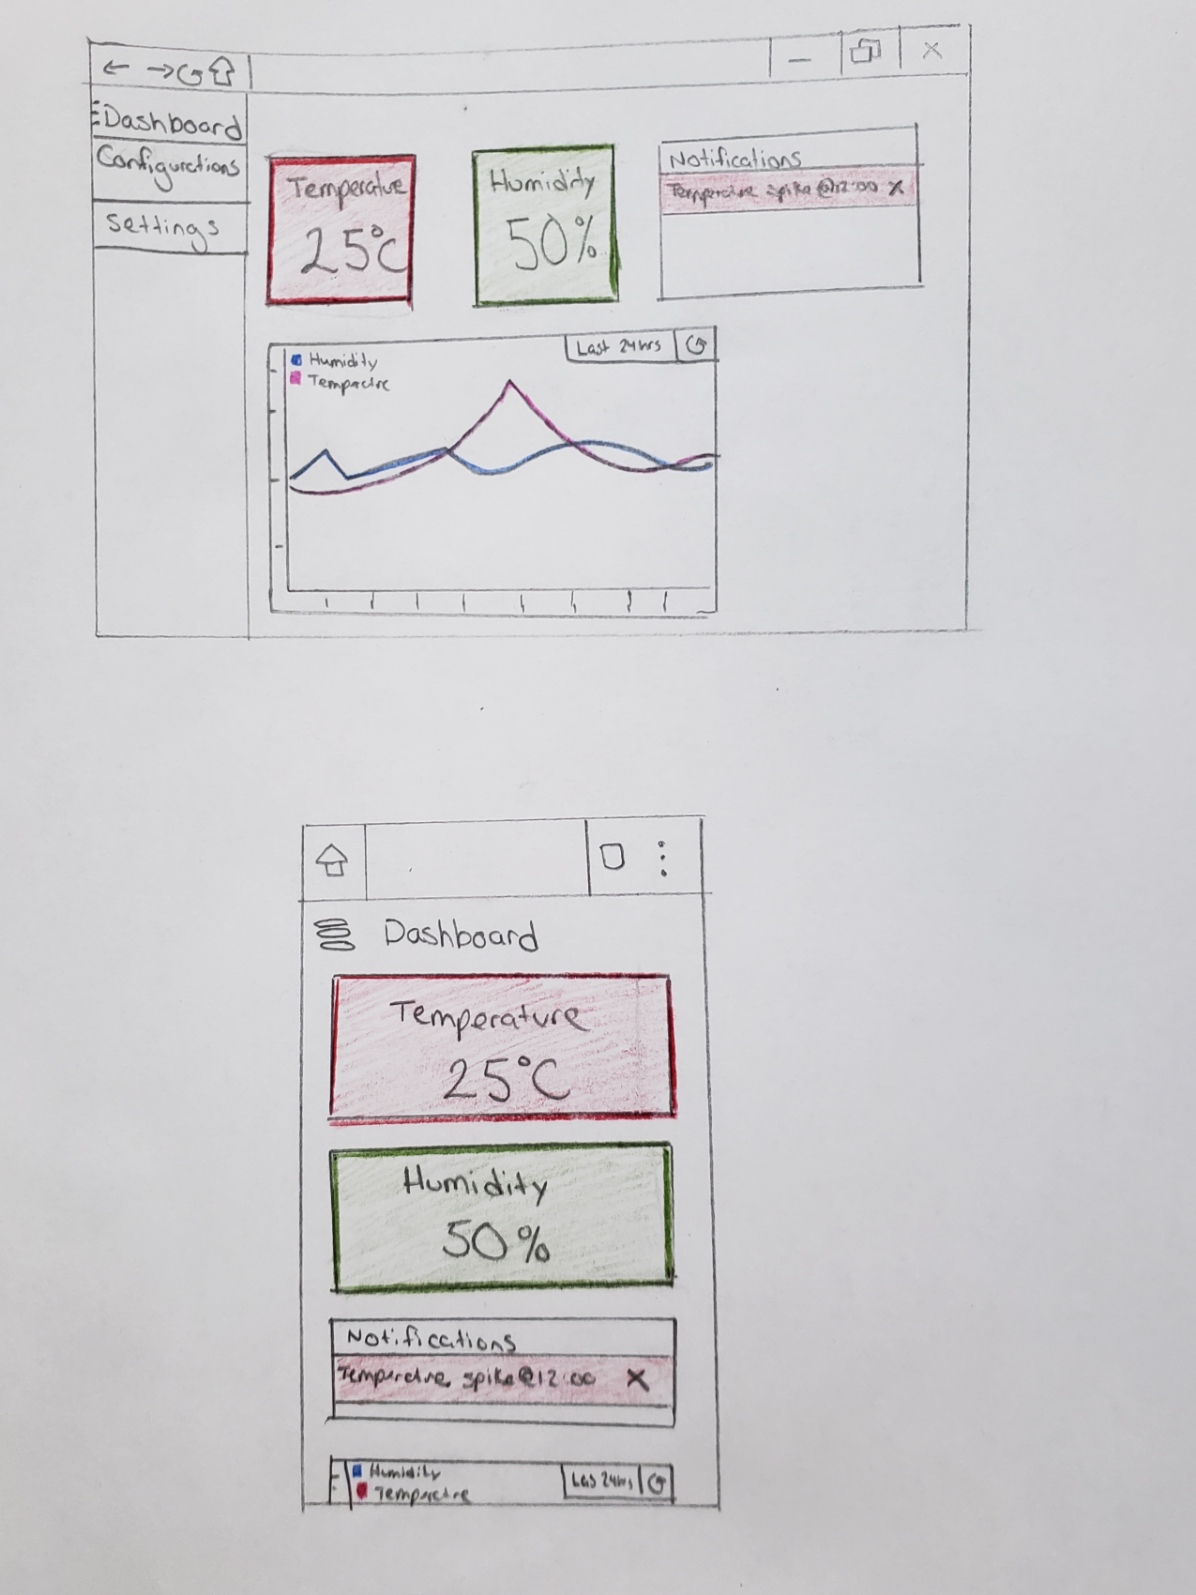 Dashboard
Configurations
Settings
Temperature
25°C
Humidity
50%
Notifications
Temperature spike @12:00 X
Humidity
Tempactre
Last 24hrs
Dashboard
Temperature
25°C
Humidity
50%
Notifications
Temperature spike @12:00 X
Humidity
Tempactre
Las 24hrs